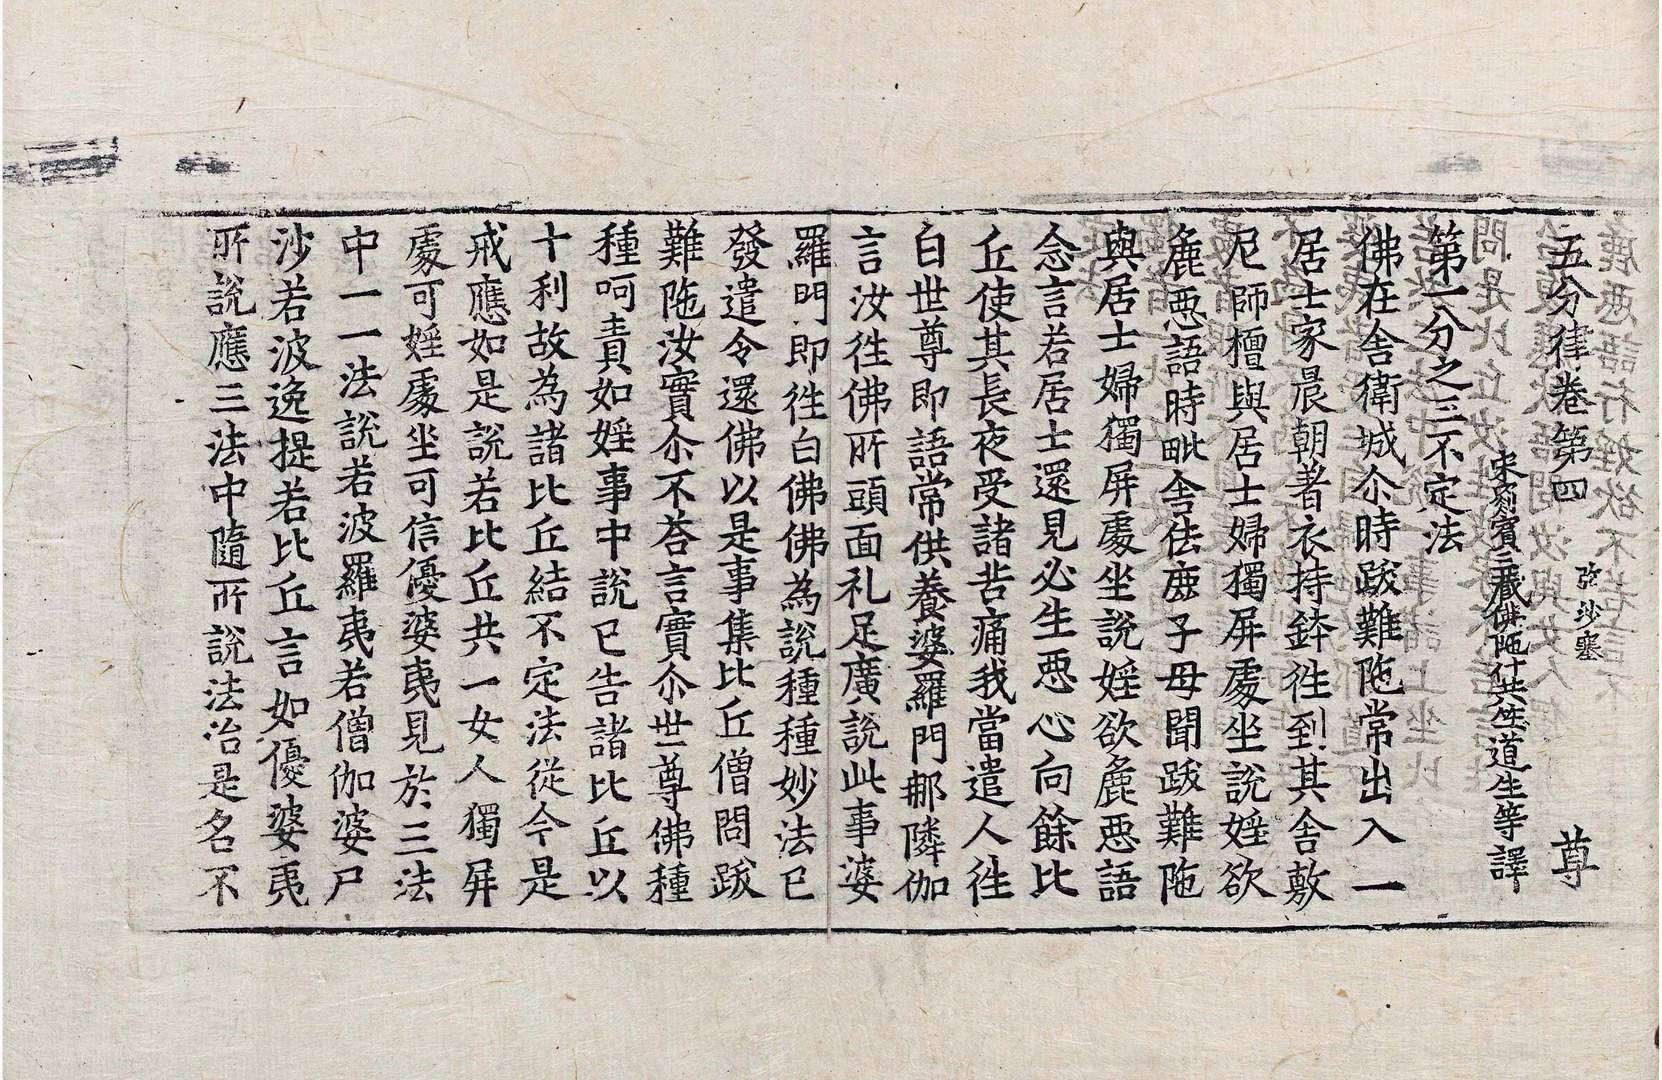 五分律卷第四 弥沙塞 尊
宋罽賓三藏佛陁什共竺道生等譯
第一分之三不定法
佛在舍衛城尒時跋難陁常出入一
居士家晨朝著衣持鉢徃到其舍敷
尼師檀與居士婦獨屏處坐說婬欲
麁惡語時毗舍佉鹿子母聞跋難陁
與居士婦獨屏處坐說婬欲麁惡語
念言若居士還見必生惡心向餘比
丘使其長夜受諸苦痛我當遣人徃
白世尊即語常供養婆羅門那隣伽
言汝徃佛所頭面礼足廣說此事婆
羅門即徃白佛佛為說種種妙法已
發遣令還佛以是事集比丘僧問跋
難陁汝實尒不荅言實尒世尊佛種
種呵責如婬事中說已告諸比丘以
十利故為諸比丘結不定法從今是
戒應如是說若比丘共一女人獨屏
處可婬處坐可信優婆夷見於三法
中一一法說若波羅夷若僧伽婆尸
沙若波逸提若比丘言如優婆夷
所說應三法中隨所說法治是名不